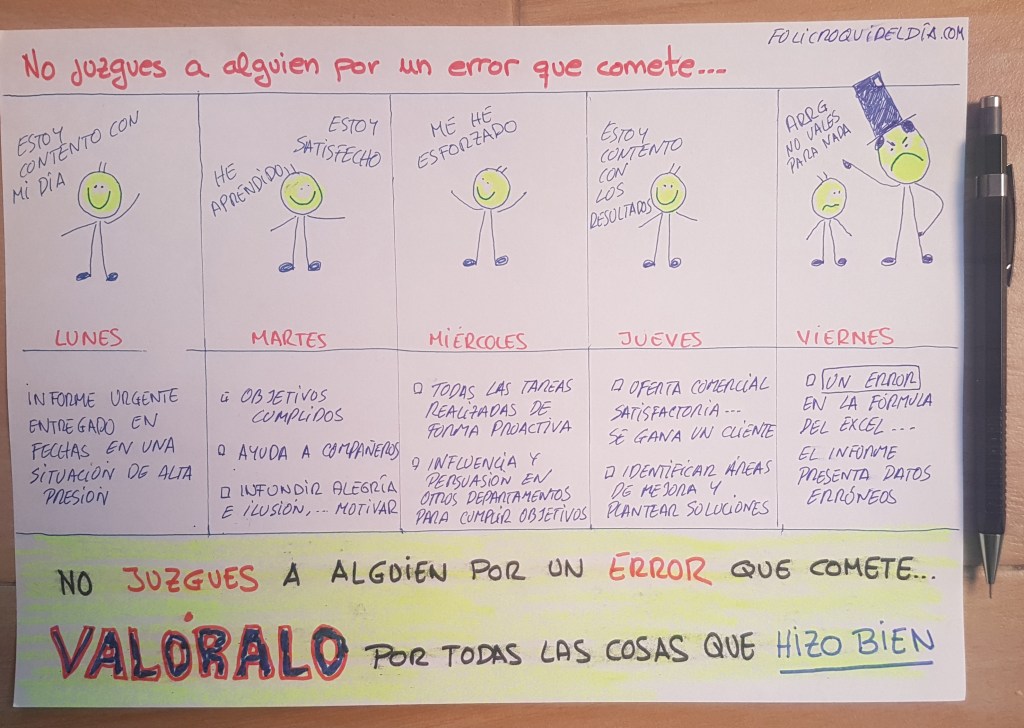 FOLICROQUISDELDÍA.COM
No juzgues a alguien por un error que comete...
ESTOY
CONTENTO CON
MI DÍA
ESTOY
SATISFECHO
HE
APRENDIDO
ME HE
ESFORZADO
ESTOY
CONTENTO
CON
LOS
RESULTADOS
ARRG
NO VALES
PARA NADA
LUNES
MARTES
MIÉRCOLES
JUEVES
VIERNES
INFORME URGENTE
ENTREGADO EN
FECHAS EN UNA
SITUACIÓN DE ALTA
PRESIÓN
OBJETIVOS
CUMPLIDOS
AYUDA A COMPAÑEROS
INFUNDIR ALEGRÍA
E ILUSIÓN,... MOTIVAR
TODAS LAS TAREAS
REALIZADAS DE
FORMA PROACTIVA
INFLUENCIA Y
PERSUASIÓN EN
OTROS DEPARTAMENTOS
PARA CUMPLIR OBJETIVOS
OFERTA COMERCIAL
SATISFACTORIA...
SE GANA UN CLIENTE
IDENTIFICAR ÁREAS
DE MEJORA Y
PLANTEAR SOLUCIONES
UN ERROR
EN LA FÓRMULA
DEL EXCEL...
EL INFORME
PRESENTA DATOS
ERRÓNEOS
NO JUZGUES A ALGUIEN POR UN ERROR QUE COMETE...
VALÓRALO POR TODAS LAS COSAS QUE HIZO BIEN